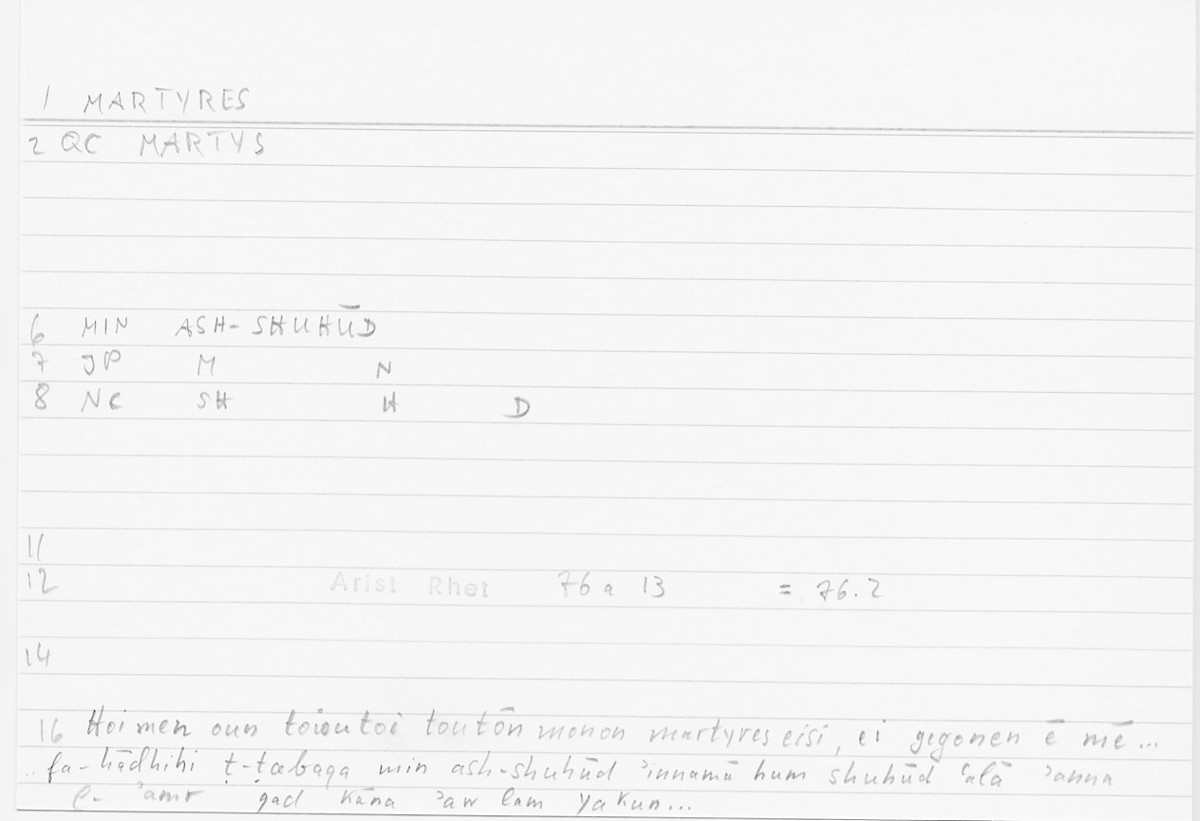 1 MARTYRES
2 QC MARTYS
6 MIN ASH-SHUHŪD
7 JP M N
8 NC SH H D
11
12 Arist Rhet 76 a 13 = 76.2
14
16 Hoi men oun toioutoi toutōn monon martyres eisi, ei gegonen ē mē...
.. fa-hādhihi ṭ-ṭabaqa min ash-shuhūd ʾinnamā hum shuhūd ʿalā ʾanna
l- ʾamr qad kāna ʾaw lam yakun...